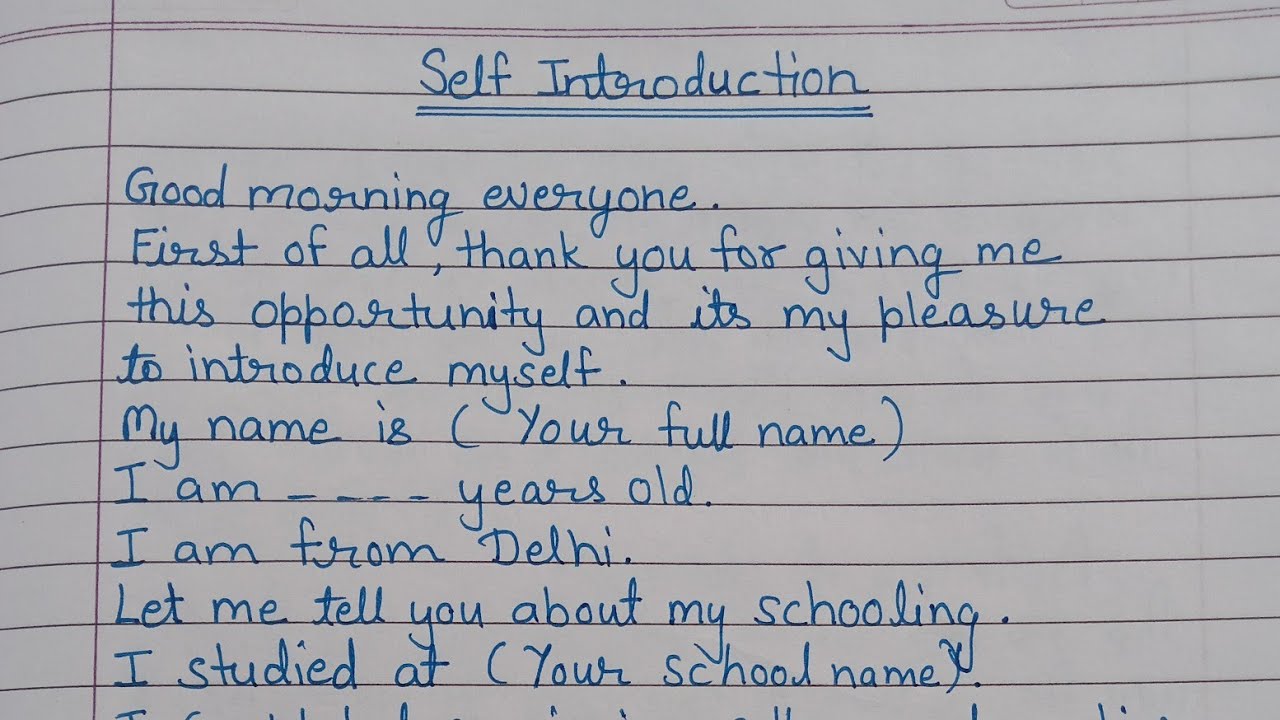 Self Introduction
Good morning everyone.
First of all, thank you for giving me
this opportunity and its my pleasure
to introduce myself.
My name is ( Your full name)
I am ---- years old.
I am from Delhi.
Let me tell you about my schooling.
I studied at (Your school name).